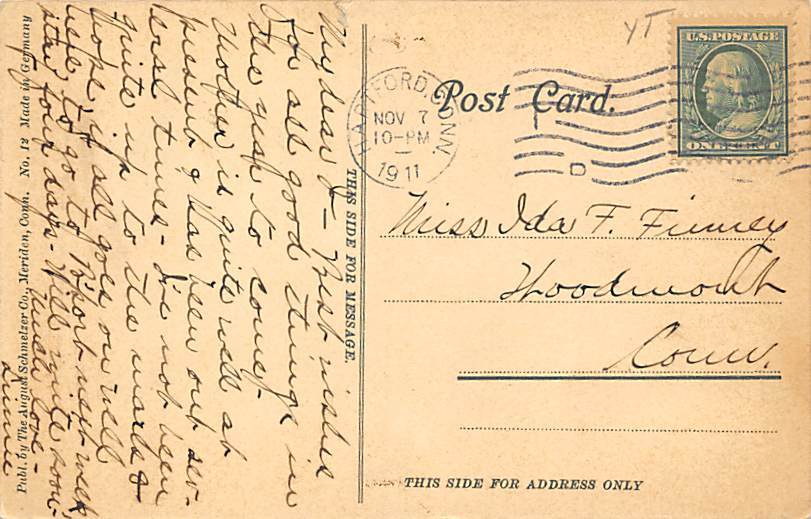 YT
U.S.POSTAGE
ONE CENT
HARTFORD, CONN.
NOV 7
10-PM
1911
Post Card.
Miss Ida F. Finney
Woodmont
Conn.
THIS SIDE FOR ADDRESS ONLY
THIS SIDE FOR MESSAGE.
My dear I— Best wishes
for all good things in
the year to come.
Mother is quite well at
present & has been out sev-
eral times - I've not been
quite up to the mark &
hope, if all goes on well
here to go to B'port next week,
itay four days - Will write soon -
much love -
Publ. by The August Schmelzer Co., Meriden, Conn. No. 12 Made in Germany